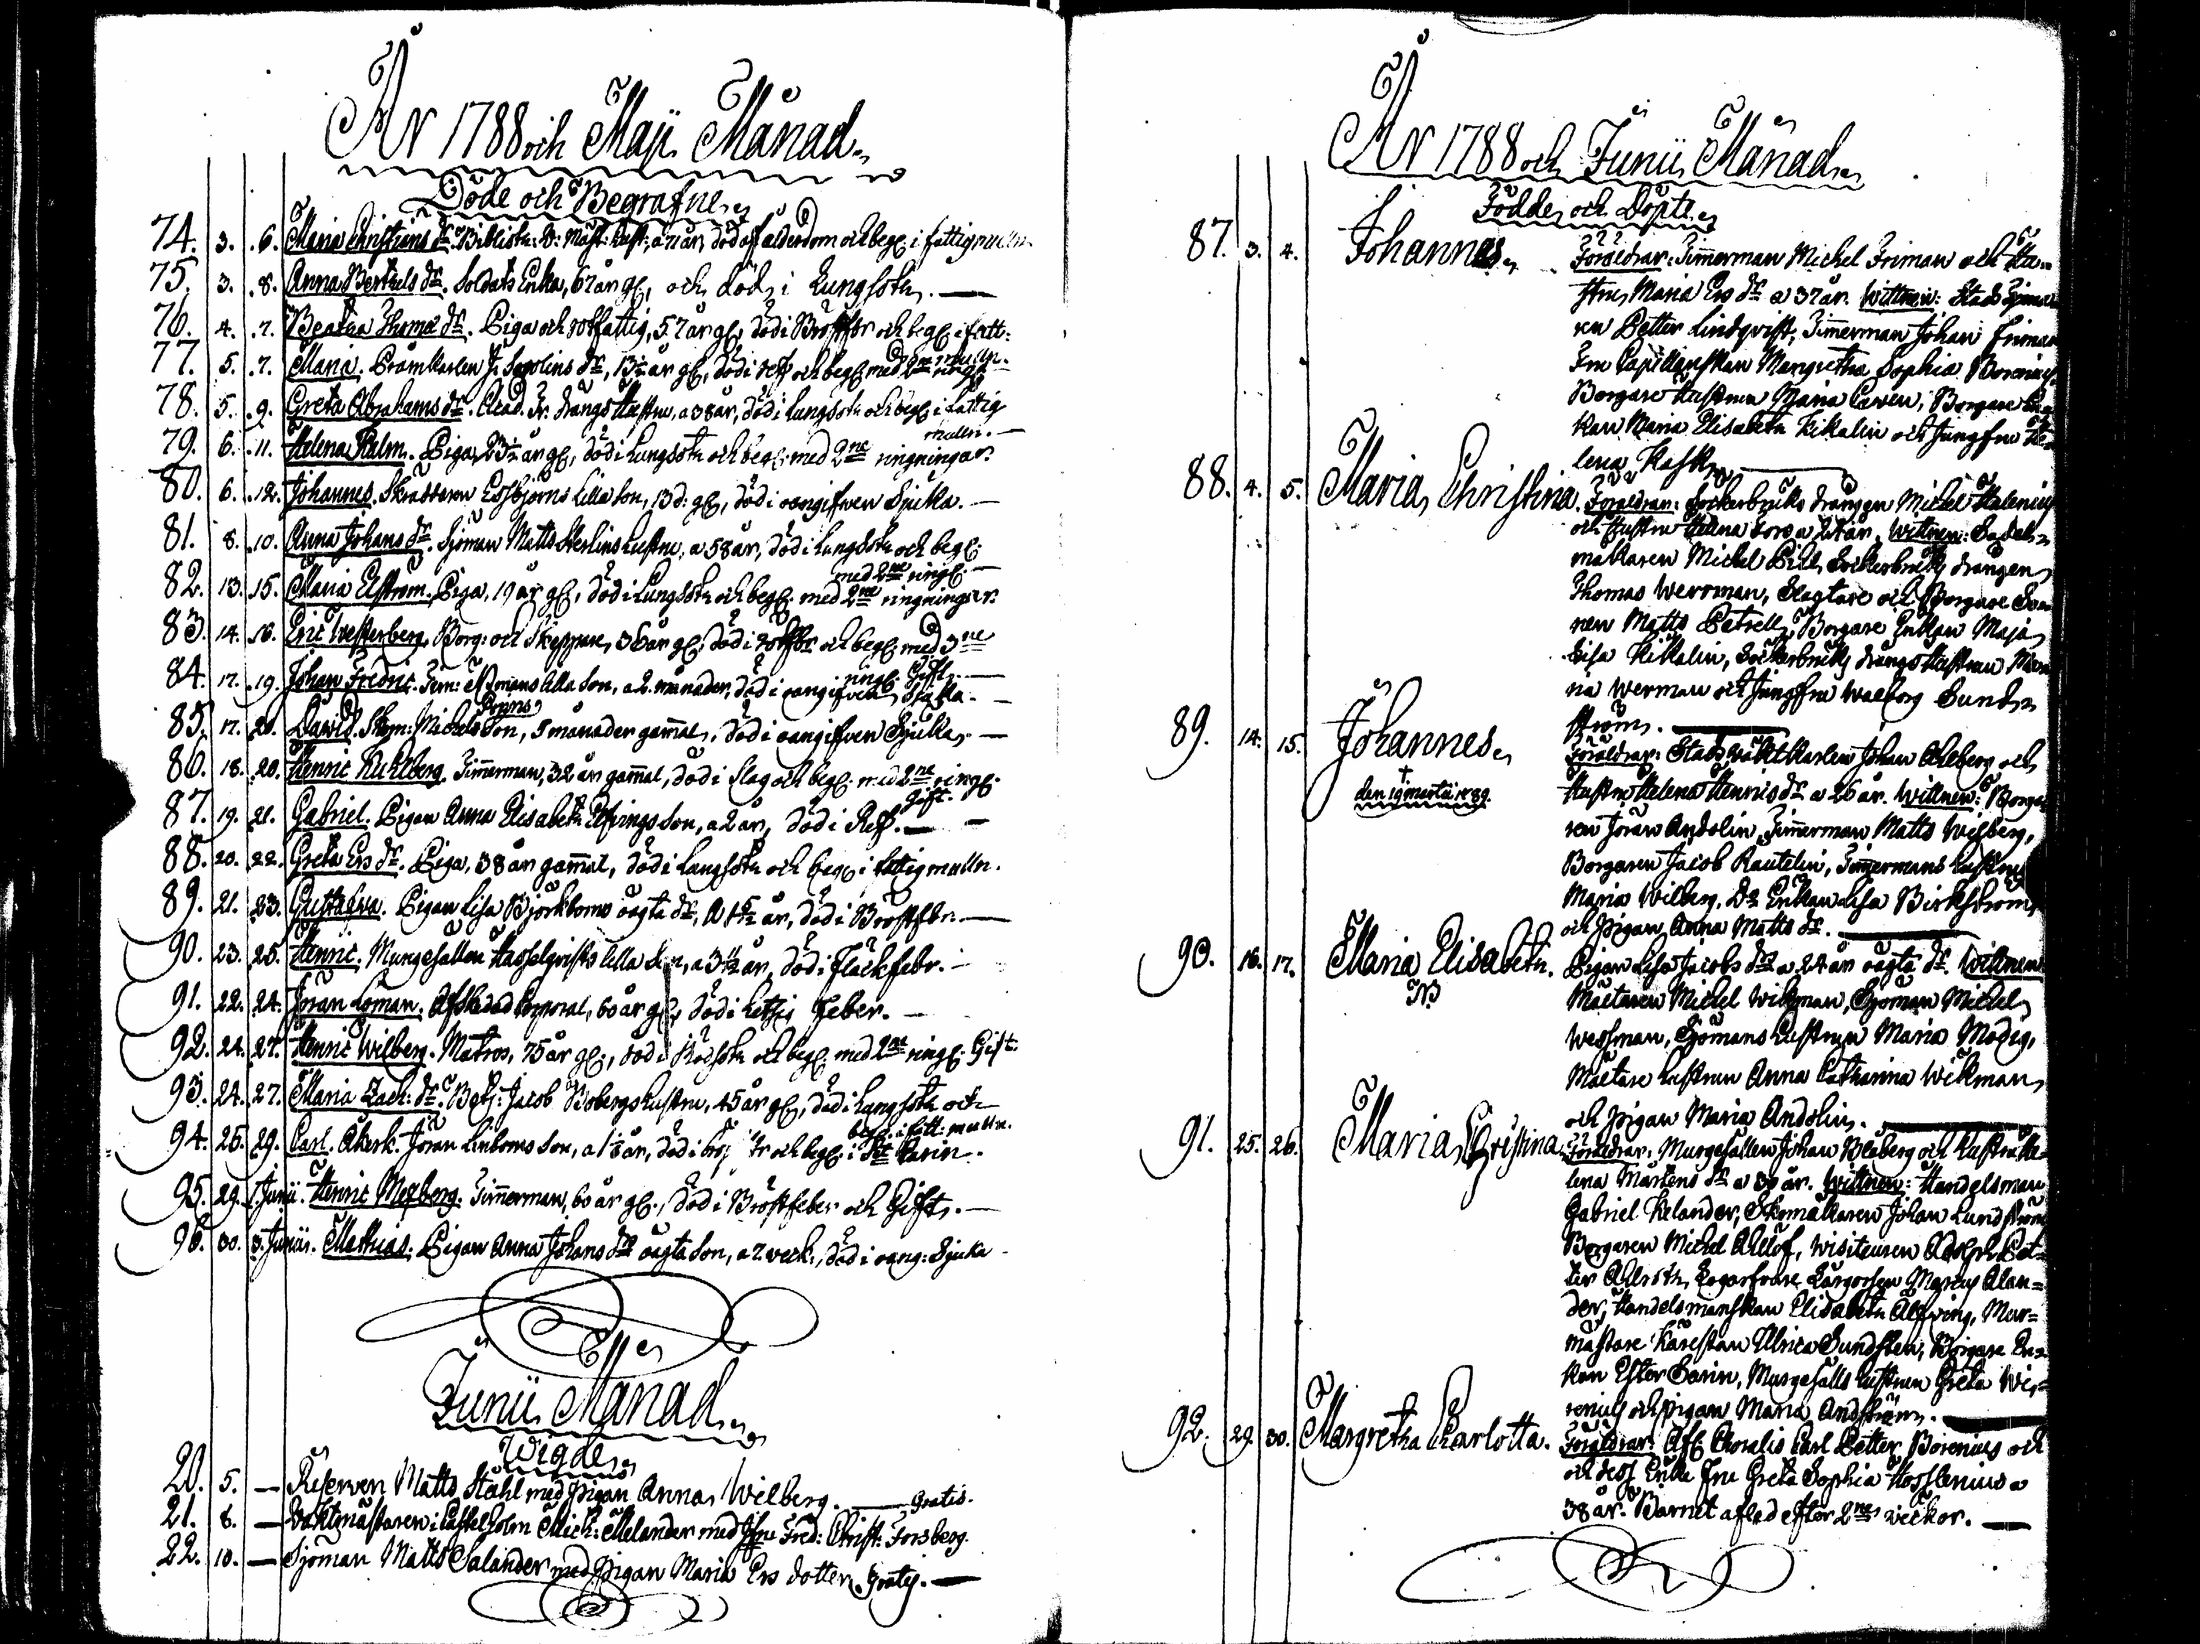 År 1788 och Maji Månad.
Döde och Begrafne.
74. 3. 6. Maria Christians dr. Biblioth: D: Mäst: hust: a 71 år, död af ålderdom och begr. i fattigmulln
75. 3. 8. Anna Berthels dr. Soldats Enka, 62 år gl, och död i Lungsoth.
76. 4. 7. Beata Thoma dr. Piga och rotfattig, 57 år gl, död i Bröstfbr och begr. i fatt:
mulln.
77. 5. 7. Maria. Pråmkarlen J: dr, 13½ år gl, död i och begr. med 2ne ringr
78. 5. 9. Greta Abrahams dr. Acad. Tr. drängs Hustru, a 38 år, död i Lungsoth och begr. i fattig
mulln.
79. 6. 11. Helena Palm. Piga, 23½ år gl, död i Lungsoth och begr. med 2ne ringningar.
80. 6. 12. Johannes. Skräddaren Essbjörns lilla Son, 13 d. gl, död i oangifwen Sjuka.
81. 8. 10. Anna Johans dr. Sjöman Matts Sterlins hustru, a 58 år, död i Lungsoth och begr.
med 2ne ringr.
82. 13. 15. Maria Elström. Piga, 19 år gl, död i Lungsoth och begr. med 2ne ringningar.
83. 14. 16. Eric Westerberg. Borg: och Skeppare, 36 år gl, död i och begr. med 3ne
ringr. Gift.
84. 17. 19. Johan Fredric. Tim: lilla Son, a 2 månader, död i oangifven Sjuka.
85. 17. 20. David. Skom: Michels Son, 5 månader gamal, död i oangifven Sjuka.
86. 18. 20. Henric Kuhlberg. Timerman, 32 år gamal, död i slag och begr. med 2ne ringr.
Gift.
87. 19. 21. Gabriel. Pigan Anna Elisabeth Elfvings Son, a 2 år, död i Ref.
88. 20. 22. Greta Ers dr. Piga, 38 år gamal, död i Lungsoth och begr. i fattigmulln.
89. 21. 23. Gustafva. Pigan Lisa Björkboms oägta dr, a 1 5/12 år, död i Bröstfbr.
90. 23. 25. Henric. Murgesällen Hasselqvists lilla Son, a 3½ år, död i Fläckfebr.
91. 22. 24. Jöran Loman. Afskedad Corporal, 60 år gl, död i hetsig Feber.
92. 24. 27. Henric Wilberg. Matros, 75 år gl., död i Rödsoth och begr. med 2ne ringr: Gift.
93. 24. 27. Maria Zach: dr. Betj: Jacob Bobergs hustru, 45 år gl, död i Lungsoth och
begr. i fatt: mulln.
94. 26. 29. Carl. Åkerk. Jöran Linboms Son, a 1 år, död i och begr. i Ste Karin.
95. 29. 1 Junii. Henric Moxberg. Timerman, 60 år gl., död i Bröstfeber och Gift.
96. 30. 3. Junii. Mathias. Pigan Anna Johans drs oägta Son, a 2 veck:, död i oang: Sjuka
Junii Månad.
Wigde.
20. 5. — Reserven Matts Ståhl med Pigan Anna Wilberg. Gratis.
21. 8. — Vaktmästaren i Castelholm Mich: Melander med Jfru Fred: Christ: Forsberg.
22. 10. — Sjöman Matts Salander med Pigan Maria Ers dotter, Gratis.
År 1788 och Junii Månad.
Födde och Döpte.
87. 3. 4. Johannes. Föräldrar: Timmerman Michel Friman och Hu-
stru, Maria Ers dr a 37 år. Wittnen: Stads
ren Petter Lindqvist, Timmerman Johan Friman
Fru Capellanskan Margretha Sophia Borenius
Borgare hustrun Maria Caven, Borgare En-
kan Maria Elisabeth Kikalin och Jungfru He-
lena Kask
88. 4. 5. Maria Christina. Föräldrar: Sockerbruks drängen Michel Halenius
och Hustru Helena a 24 år. Wittnen: Sadel-
makaren Michel Pihl, Sockerbruks drängen
Thomas Werrman, Slagtare och Borgare Sven
nen Matts Petrell, Borgare Enkan Maja
Lisa Kikalin, Sockerbruks drängs Hustrun Mari
na Werman och Jungfru Walborg Sund-
ström.
89. 14. 15. Johannes. Föräldrar: Stads waktkarlen Johan Ahlberg och
† den 19 martii 1789.
Hustru Helena Henrics dr a 26 år. Wittnen: Borga-
ren Jöran Andolin, Timmerman Matts Wilberg,
Borgaren Jacob Rautelin, Timmermans hustrun
Maria Wilberg, Do Enkan Lisa Birkström
och Pigan Anna Matts dr.
90. 16. 17. Maria Elisabeth. Pigan Lisa Jacobs drs a 24 år oägta dr. Wittnen
NB
Mältaren Michel Wikman, Sjöman Michel
Wessman, Sjömans hustrun Maria Modig,
Mältare hustrun Anna Catharina Wikman,
och Pigan Maria Andolin.
91. 25. 26. Maria Christina. Föräldrar: Murgesällen Johan Blåberg och hustru He-
lena Mårtens dr a 30 år. Wittnen: Handelsman
Gabriel Helander, Skomakaren Johan Lundström
Borgaren Michel Ahllöf, Visiteuren Adolph Pet-
ter Ahlroth, Marcus Alan=
der, Handelsmanskan Elisabeth Alfving, Mur=
mästare Kärestan Ulrica Sundsten, Borgare En-
kan Ester Sarin, Murgesälls hustrun Greta We-
renius och Pigan Maria Andström.
92. 29. 30. Margretha Charlotta. Föräldrar: Afl. Choralis Carl Petter Borenius och
och dess Enka Fru Greta Sophia Hosslenius a
38 år. Barnet afled efter 2ne veckor.